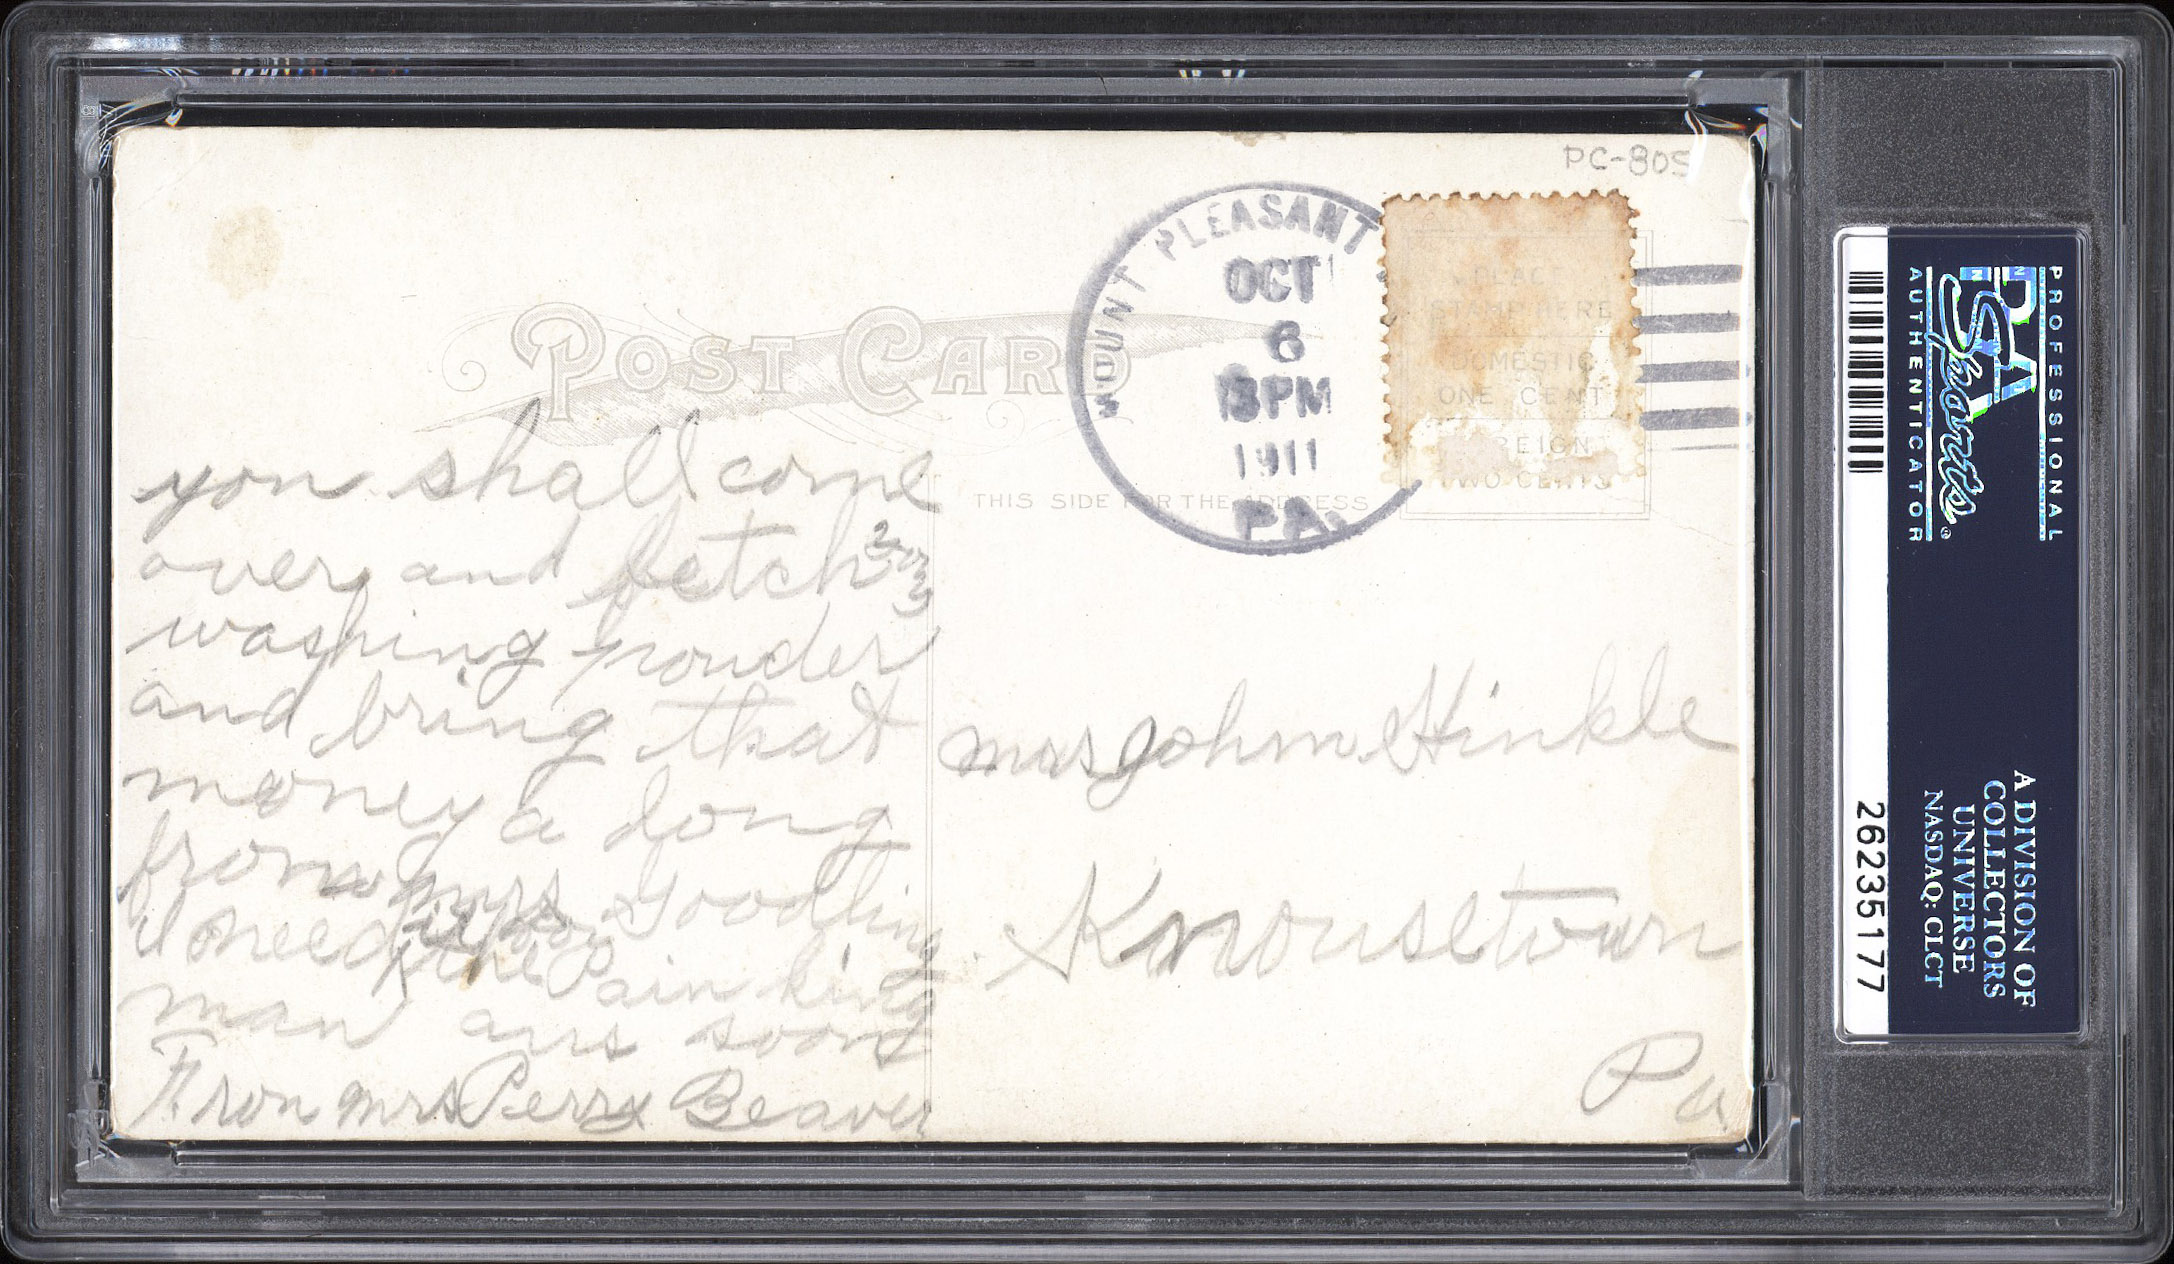 PC-805
MOUNT PLEASANT
OCT
6
3PM
1911
PA.
POST CARD
PLACE
STAMP HERE
DOMESTIC
ONE CENT
FOREIGN
TWO CENTS
THIS SIDE FOR THE ADDRESS
you shall come
over and fetch
washing pouder
and bring that
money a long
from mrs Goodling
i need it for
the Pain king
man ans soon
From mrs Perry Beaver
mrs John Hinkle
Knousetown
Pa
PROFESSIONAL
PSA
Sports
AUTHENTICATOR
A DIVISION OF
COLLECTORS
UNIVERSE
NASDAQ: CLCT
26235177